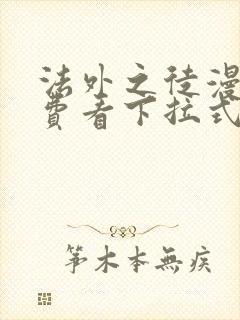 法外之徒漫
费看下拉式
笫木本無疾